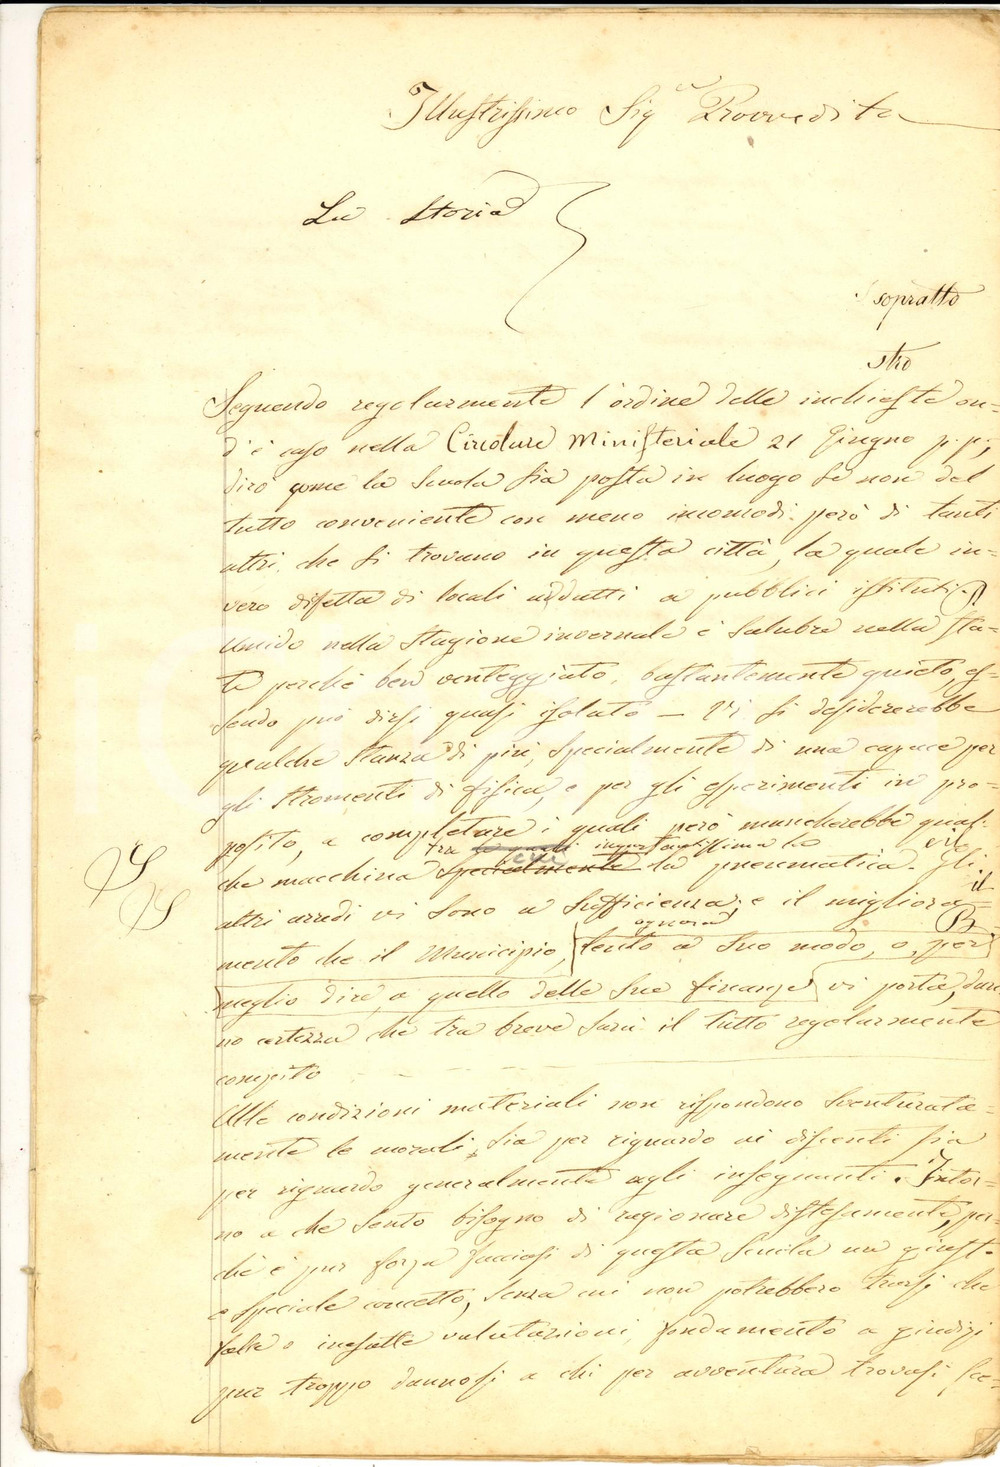 Illustrissimo Sig.r Provvedito
La Storia
sopratto
stro
Seguendo regolarmente l'ordine delle inchieste on-
d'è caso nella Circolare Ministeriale 21 Giugno p.p.,
dirò come la Scuola sia posta in luogo se non del
tutto conveniente con meno incomodi però di tanti
altri che si trovano in questa città, la quale in-
vero difetta di locali addatti a pubblici istituti.
Umido nella stagione invernale è salubre nella sta-
te perchè ben venteggiato, bastantemente quieto, es-
sendo può dirsi quasi isolato — Vi si desidererebbe
qualche stanza di più, specialmente di una capace per
gli stromenti di fisica, e per gli esperimenti in pro-
posito, a completare i quali però mancherebbe qual-
tra le quali importantissima la
che macchina specialmente la pneumatica. Gli
altri arredi vi sono a sufficienza; e il migliora-
ognora
mento che il Municipio, lento a suo modo, o, per
meglio dire, a quello delle sue finanze vi porta, dan
no certezza che tra breve sarà il tutto regolarmente
compito
Alle condizioni materiali non rispondono sventurata-
mente le morali, sia per riguardo ai discenti sia
per riguardo generalmente agli insegnanti. Intor-
no a che sento bisogno di ragionare distesamente, per-
chè è pur forza facciasi di questa Scuola un giusto
e speciale concetto, senza cui non potrebbero trarsi che
false o inesatte valutazioni, fondamento a giudizi
pur troppo dannosi a chi per avventura trovasi